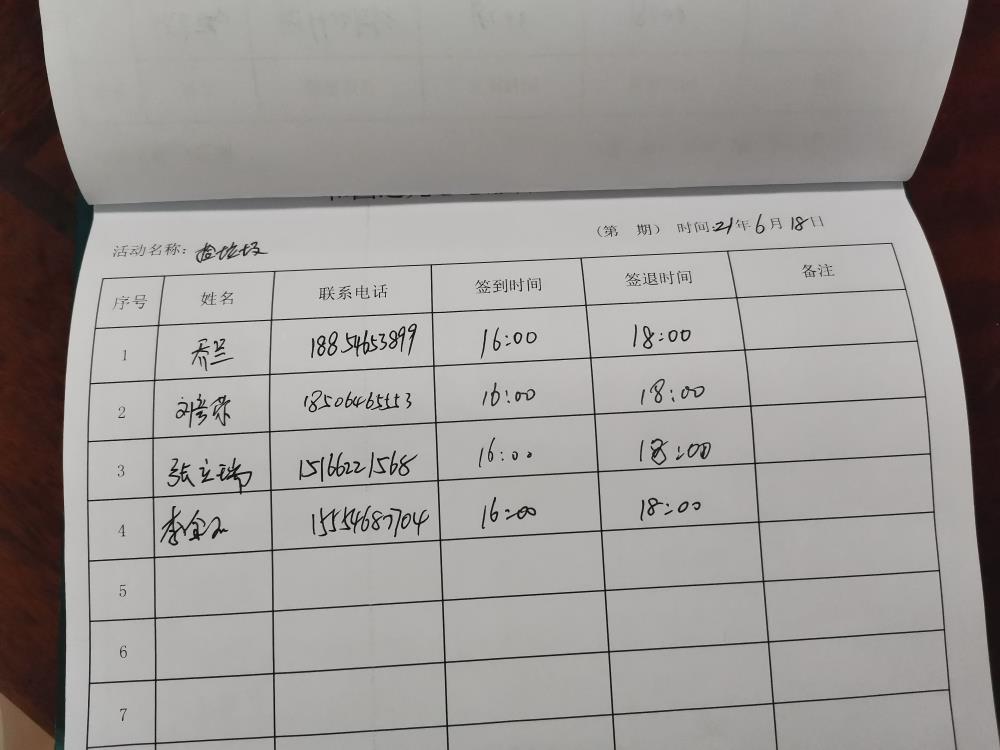 活动名称: 捡垃圾 (第 期) 时间:21年6月18日
序号 姓名 联系电话 签到时间 签退时间 备注
1 乔兰 18854653899 16:00 18:00
2 刘彦荣 18506465553 16:00 18:00
3 张立瑞 15166221568 16:00 18:00
4 李 15554687704 16:00 18:00
5
6
7